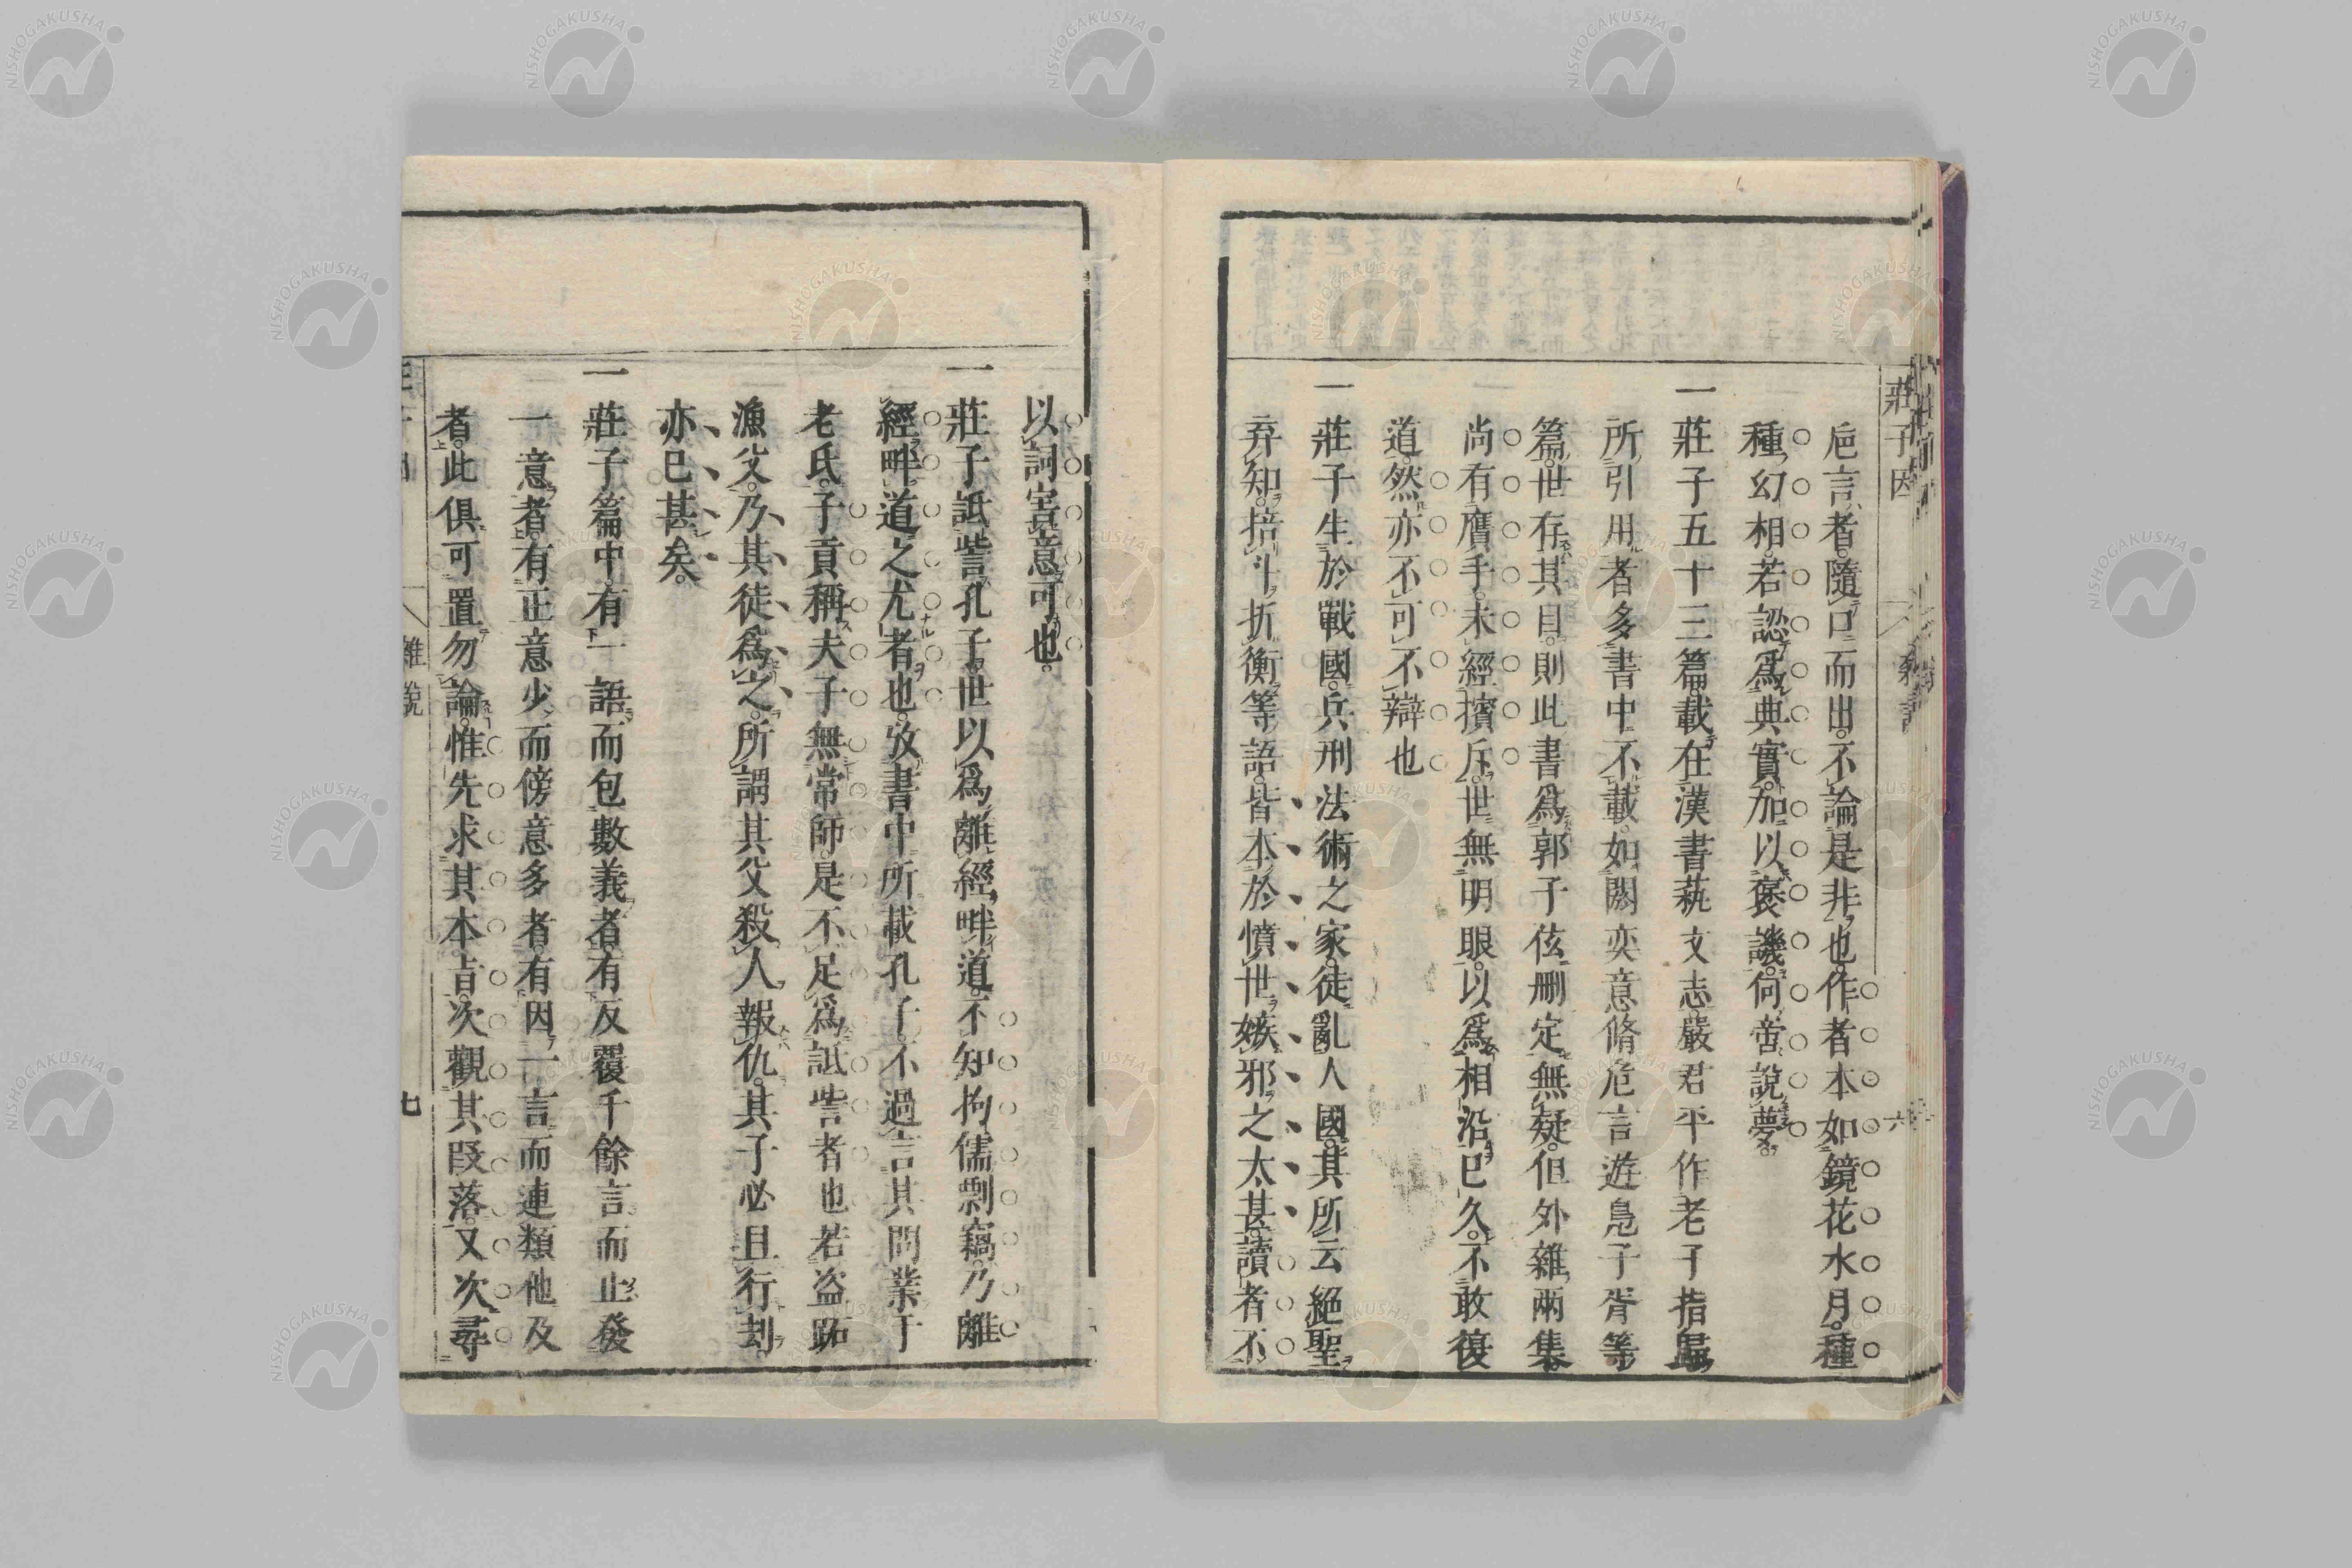 莊子因
雜説
六
卮言者。隨口而出。不論是非也。作者本如鏡花水月。種
種幻相。若認爲典實。加以褒譏。何啻說夢。
一莊子五十三篇。載在漢書藝文志。嚴君平作老子指歸
所引用者多書中不載。如閼奕意脩危言遊鳧子胥等
篇。世存其目。則此書爲郭子伭刪定無疑。但外雜兩集
尚有贋手。未經擯斥。世無明眼。以爲相沿已久。不敢復
道。然亦不可不辯也
一莊子生於戰國。兵刑法術之家。徒亂人國。其所云絕聖
弃知。掊斗折衡等語。皆本於憤世嫉邪之太甚。讀者不
以詞害意可也。
一莊子詆訾孔子。世以爲離經畔道。不知拘儒剽竊。乃離
經畔道之尤者也。攷書中所載孔子。不過言其問業于
老氏。子貢稱夫子無常師。是不足爲詆訾者也若盜跖
漁父。乃其徒爲之。所謂其父殺人報仇。其子必且行刦。
亦已甚矣。
一莊子篇中。有一語而包數義者。有反覆千餘言而止發
一意者。有正意少而傍意多者。有因一言而連類他及
者。此俱可置勿論。惟先求其本旨。次觀其段落。又次尋
雜說
七